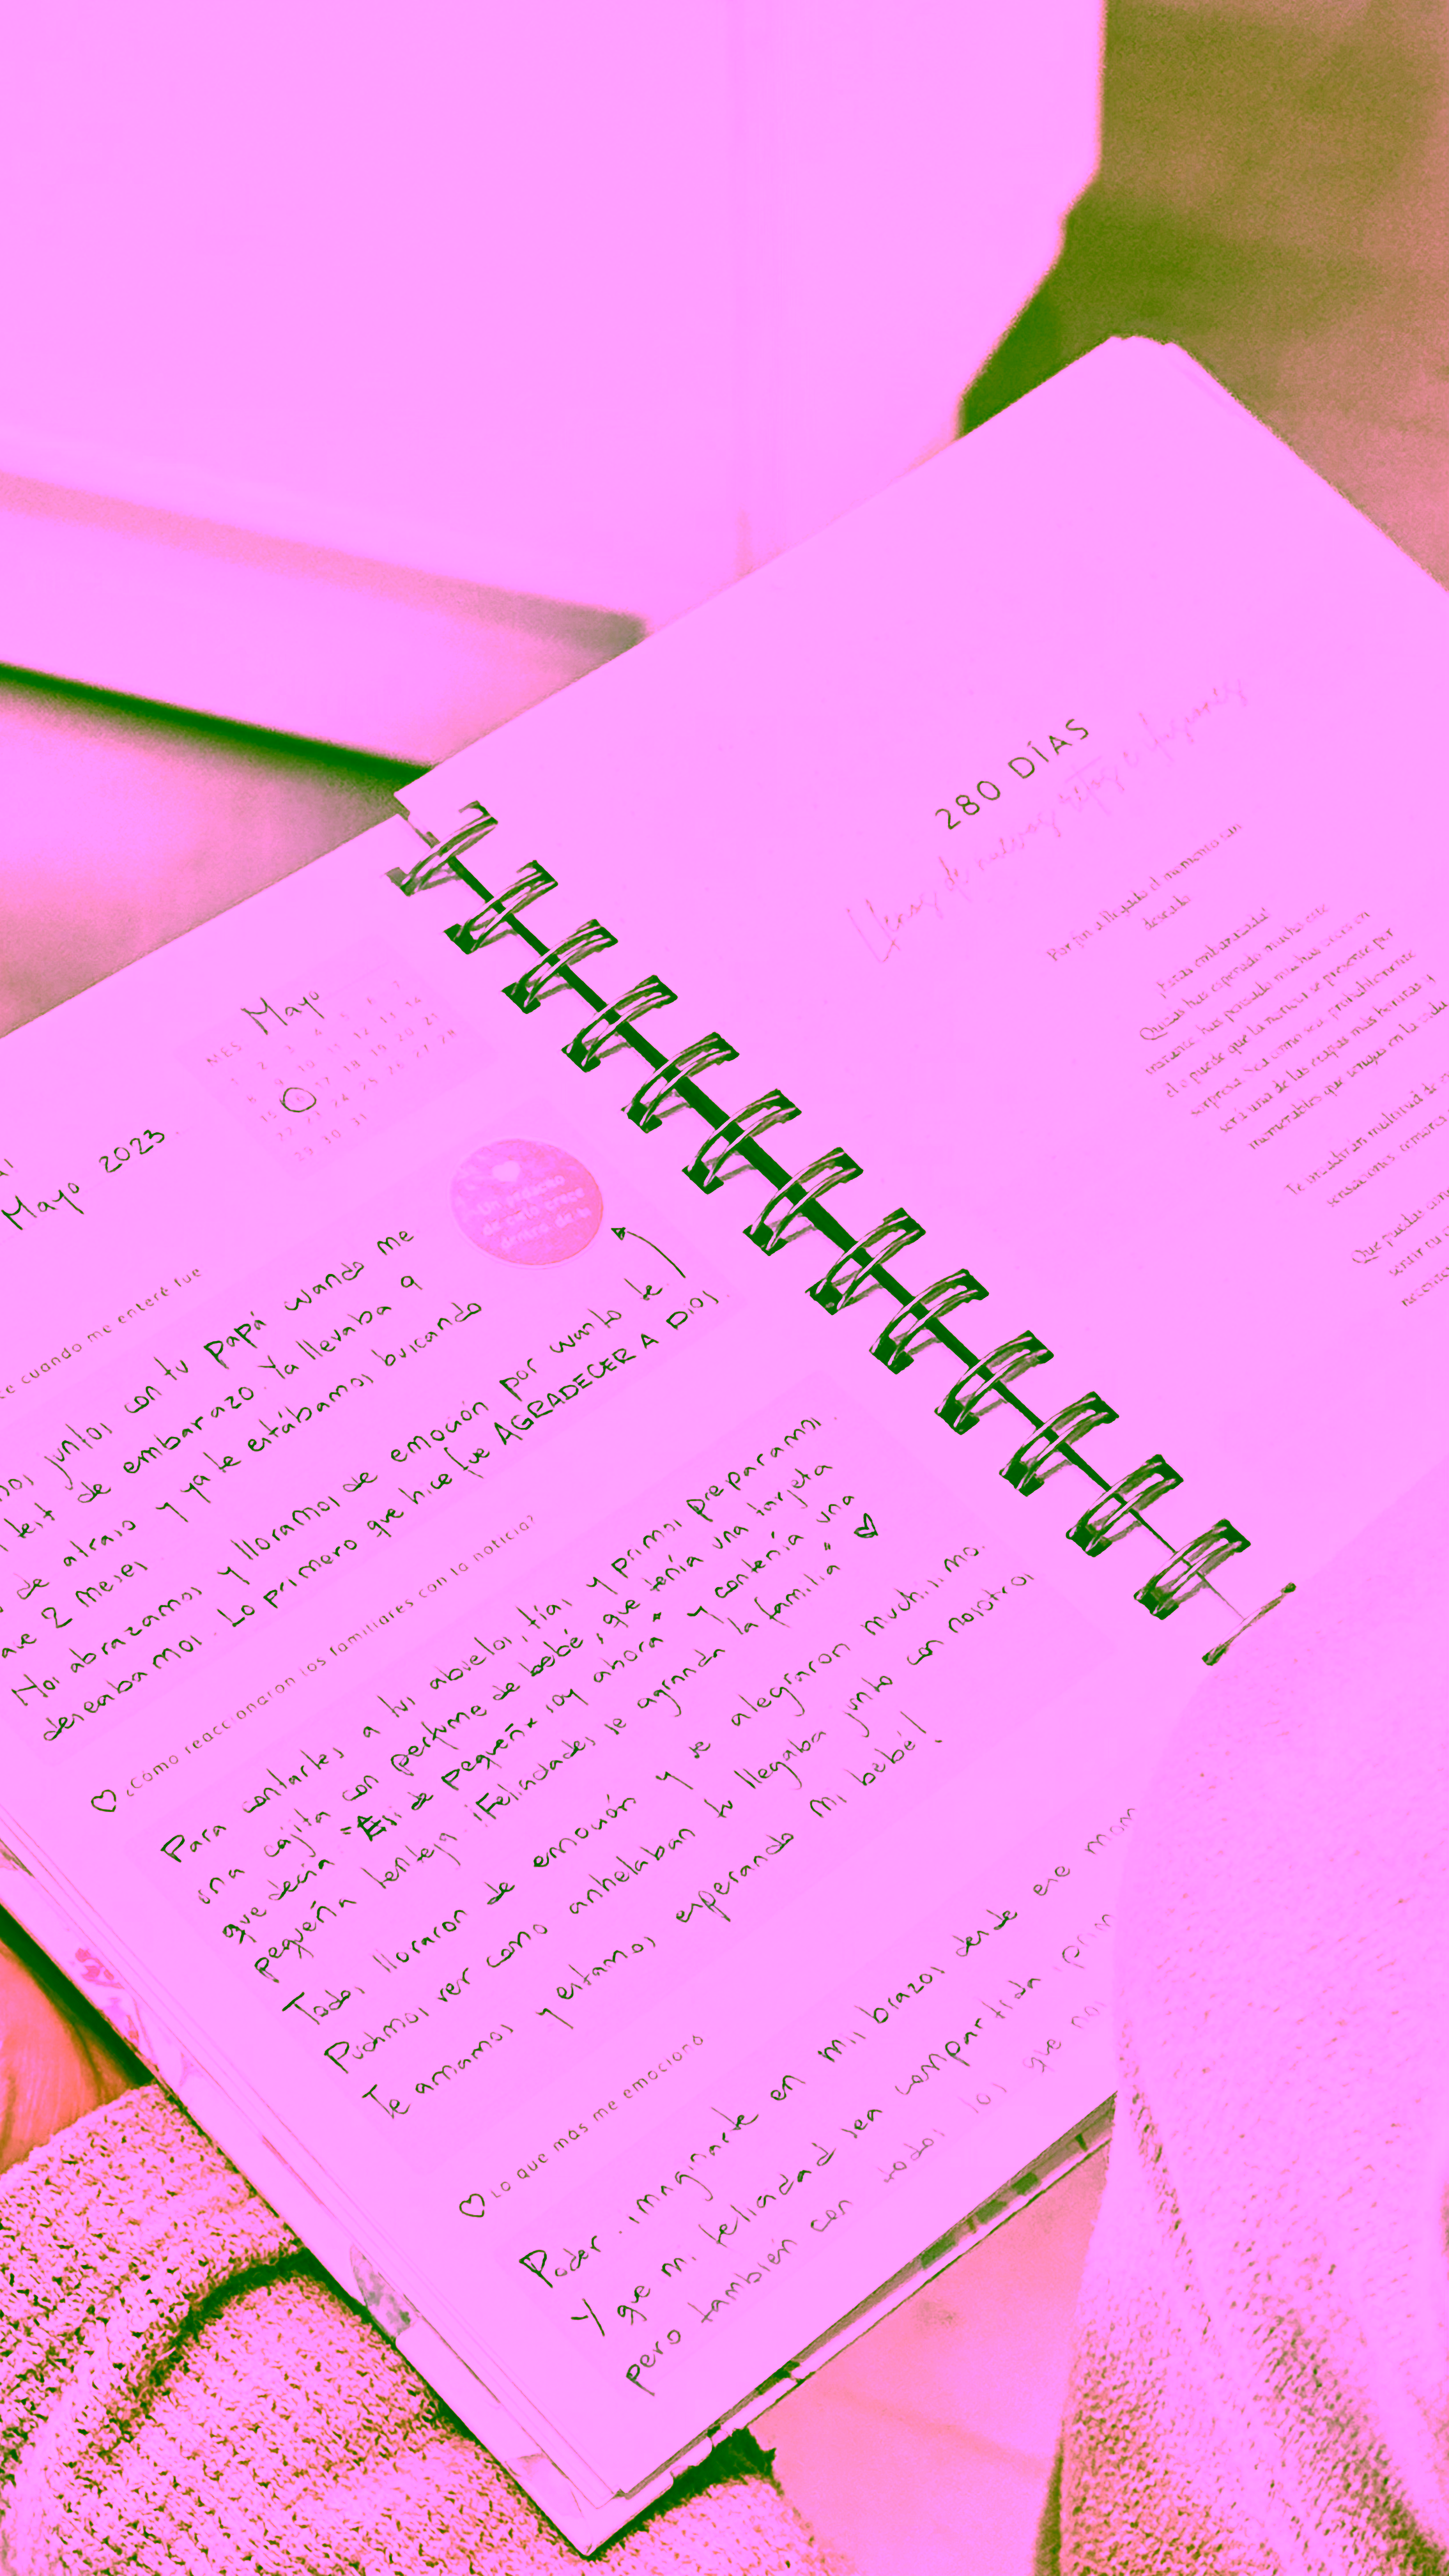 MES Mayo
1 2 3 4 5 6 7
8 9 10 11 12 13 14
15 17 18 19 20 21
22 23 24 25 26 27 28
29 30 31
Mayo 2023.
cuando me enteré fue
juntos con tu papá cuando me
test de embarazo. Ya llevaba 9
de atraso y ya te estábamos buscando
2 meses.
Nos abrazamos y lloramos de emoción por cuanto te
deseabamos. Lo primero que hice fue AGRADECER A DIOS.
Un pedacito
de cielo crece
dentro de ti
¿Cómo reaccionaron los familiares con la noticia?
Para contarles a tus abuelos, tías y primos preparamos
una cajita con perfume de bebé, que tenía una tarjeta
que decía "Así de pequeñx soy ahora" y contenía una
pequeña lenteja. ¡Felicidades se agranda la familia"
Todos lloraron de emoción y se alegraron muchísimo.
Pudimos ver como anhelaban tu llegaba junto con nosotros
Te amamos y estamos esperando mi bebé!
Lo que más me emocionó
Poder imaginarte en mis brazos desde ese mom
Y que mi felicidad sea compartida
pero también con todos los que
280 DÍAS
Llenos de nuevos retos e ilusiones
Por fin a llegado el momento tan
deseado
¡Estás embarazada!
Quizás has esperado mucho este
instante, has pensado muchas veces en
el o puede que la noticia se presente por
sorpresa. Sea como sea, probablemente
será una de las etapas más bonitas y
memorables que tengas en la vida
Te invadirán multitud de
sensaciones, temores
Que puedas
sentir tu